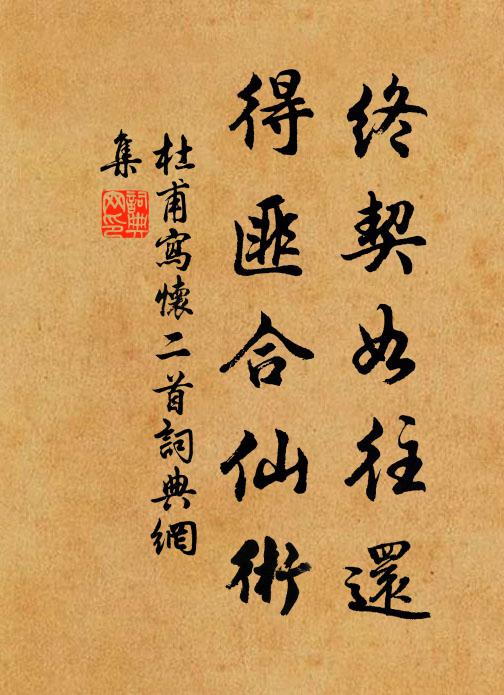 終契如往還
得匪合仙術
杜甫寫懷二首詞典網
集
詞典網印